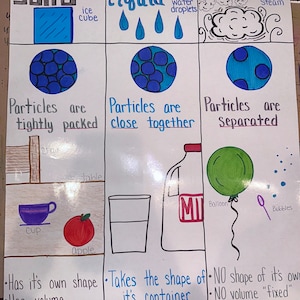 Solid
ice
cube
Liquid
water
droplets
steam
Particles are
tightly packed
Particles are
close together
Particles are
separated
table
cup
apple
MIL
Balloon
Bubbles
•Has it's own shape
volume
•Takes the shape of
it's container
•NO shape of it's own
NO volume "fixed"